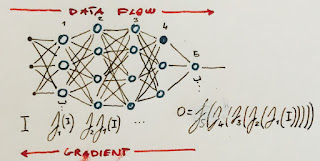 DATA FLOW
1 2 3 4 5
I f₁(I) f₂f₁(I) ... O=f₅(f₄(f₃(f₂(f₁(I)))))
GRADIENT